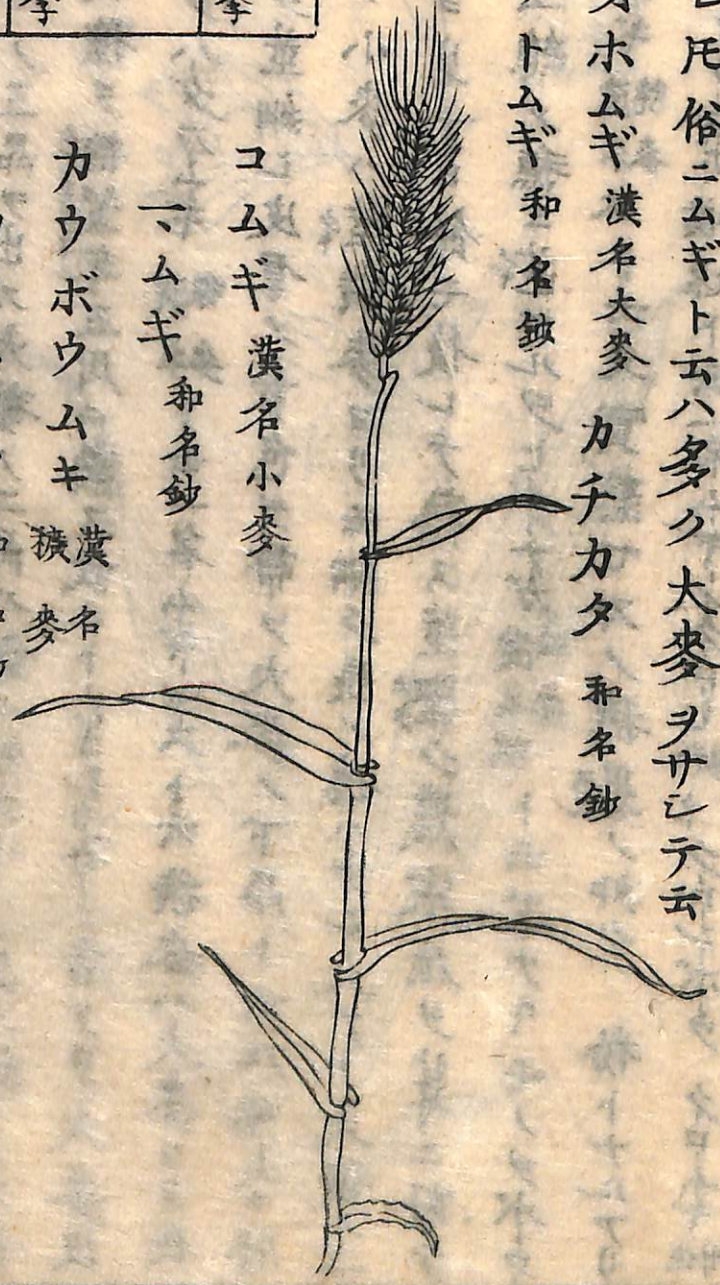 俗ニムギト云ハ多ク大麥ヲサシテ云
オホムギ 漢名大麥 カチカタ 和名鈔
トムギ 和名鈔
コムギ 漢名小麥
一、ムギ 和名鈔
カウボウムキ 漢名 穬麥